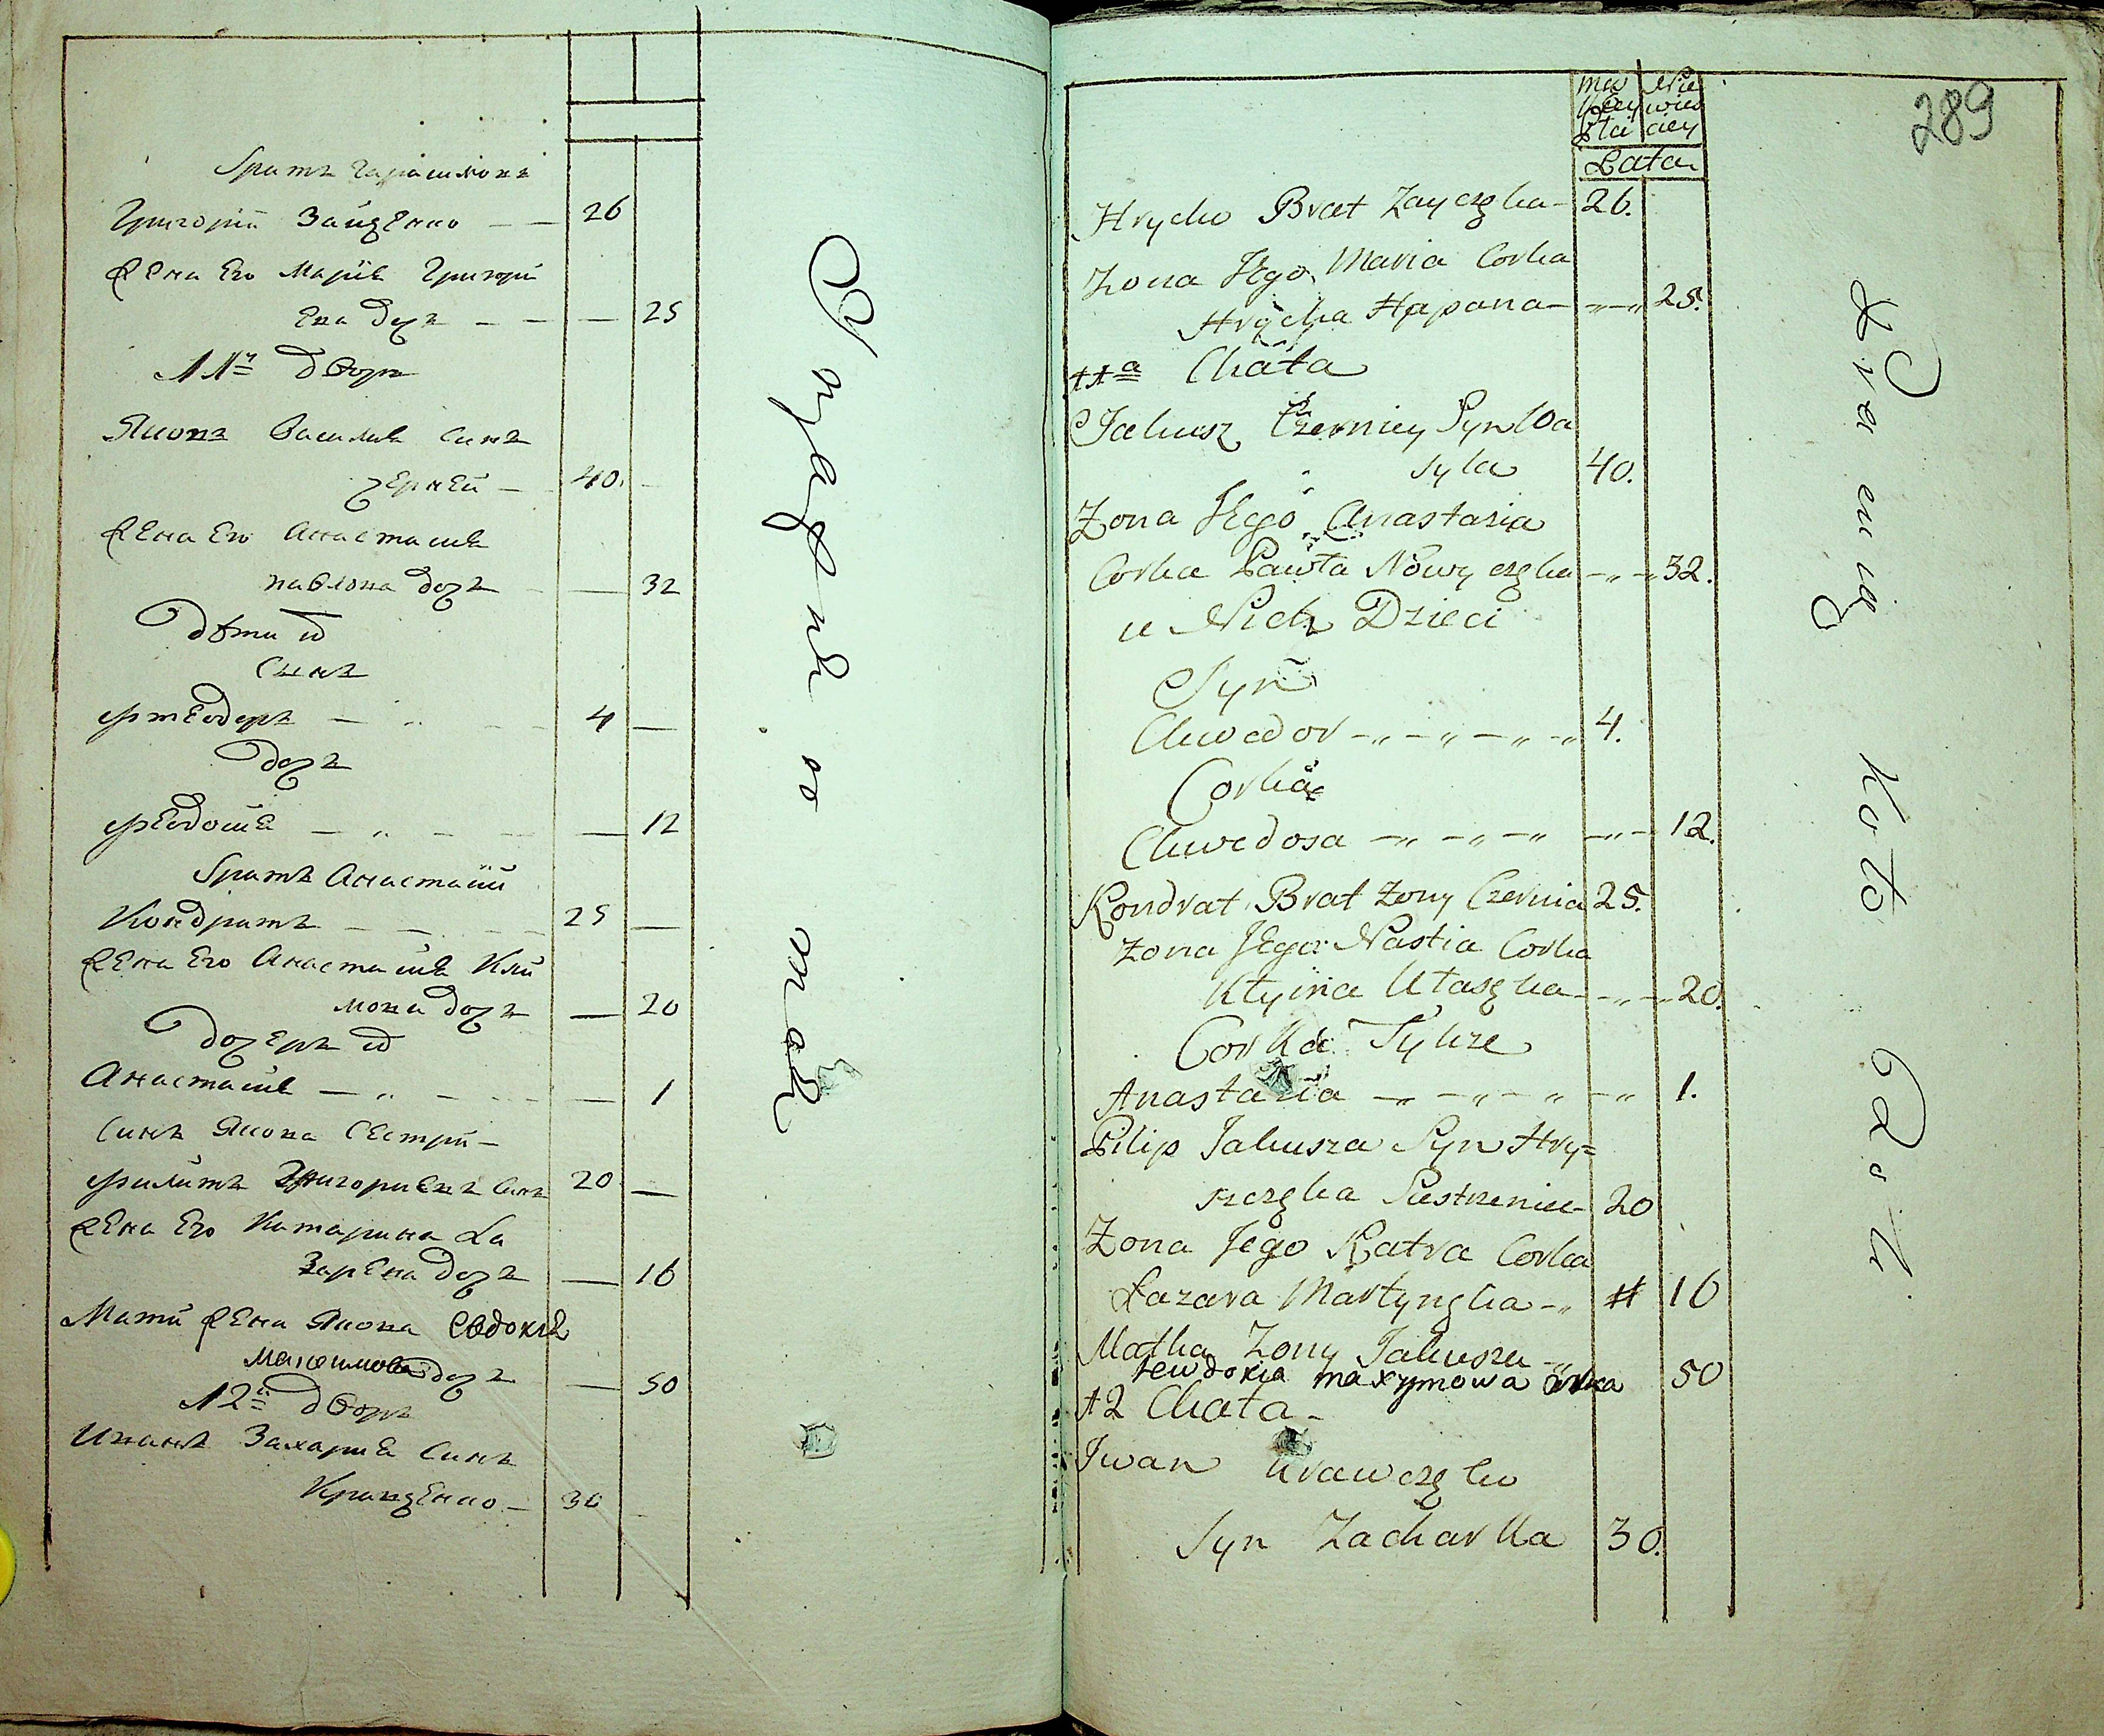 братъ Гарасимовъ
Григорій Зайченко — — 26
жена Его Марія Григорі
Ева дочь — — — 25
11й дворъ
Яковъ Василія Синъ
черней — 40.
жена Его Анастасия
павлова дочь — — 32
дѣти их
Синъ
фтеодоръ — 4 —
дочь
феодосия — — 12
братъ Анастасіи
Кондратъ — — 25 —
жена Его Анастасия Кли
мова дочь — 20
дочерь их
Анастасия — — 1
Синъ Якова Сестри —
филипъ Григориевъ Синъ 20 —
жена Его Катарина Ла
зарева дочь — 16
Мати жена Якова Евдокия
Максимова дочь — 50
12й дворъ
Иванъ Захария Синъ
Кравченко — 30
289
męs kiey płci
Nie wieś ciey
Lata
Hrycko Brat Zayczęka — 26.
Zona Jego Maria Corka
Hrycka Hapona — 25.
11a Chata
Jakusz Czerniey Syn Wa
syla 40.
Zona Jego Anastazia
Corka Pawła Nowyczęka — 32.
u Nich Dzieci
Syn
Chwedor — 4.
Corka
Chwedosa — 12.
Kondrat Brat żony Czernia 25.
Zona Jego Nastia Corka
Kłyma Utaszka — 20.
Corka Tychze
Anastazia — 1.
Pilip Jakusza Syn Hry=
szczęka Siestrzeniec 20
Zona Jego Katra Corka
Łazara Martynęka — 16
Matka Zony Jakusza
Jewdokia maxymowa corka 50
12 Chata —
Iwan Krawczęko
Syn Zacharka 30.